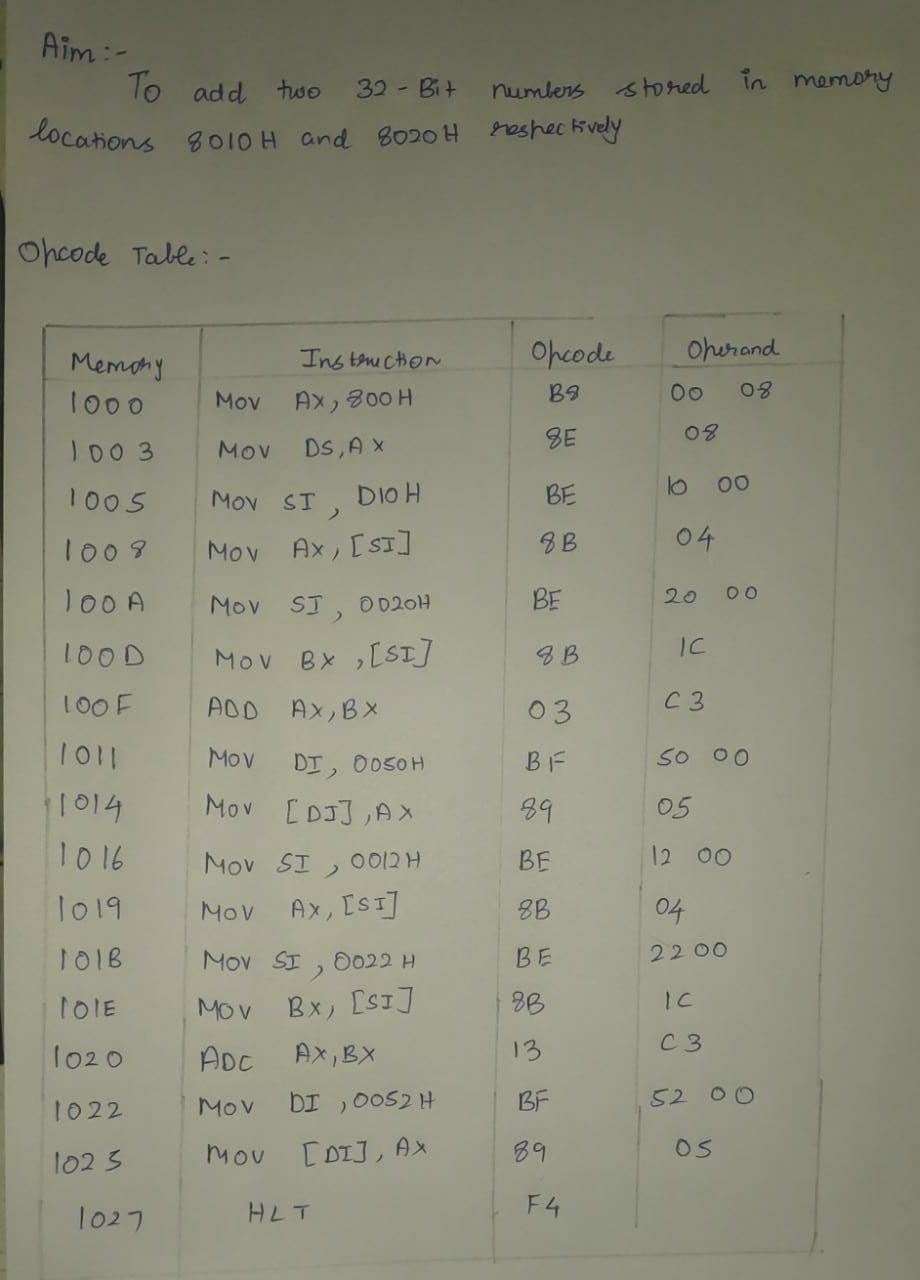 Aim :-
To add two 32-Bit numbers stored in memory
locations 8010H and 8020H respectively
Opcode Table:-
Memory Instruction Opcode Operand
1000 MOV AX, 800H B8 00 08
1003 MOV DS, AX 8E 08
1005 MOV SI, D10H BE 10 00
1008 MOV AX, [SI] 8B 04
100A MOV SI, 0020H BE 20 00
100D MOV BX, [SI] 8B 1C
100F ADD AX, BX 03 C3
1011 MOV DI, 0050H BF 50 00
1014 MOV [DI], AX 89 05
1016 MOV SI, 0012H BE 12 00
1019 MOV AX, [SI] 8B 04
101B MOV SI, 0022H BE 22 00
101E MOV BX, [SI] 8B 1C
1020 ADC AX, BX 13 C3
1022 MOV DI, 0052H BF 52 00
1025 MOV [DI], AX 89 05
1027 HLT F4